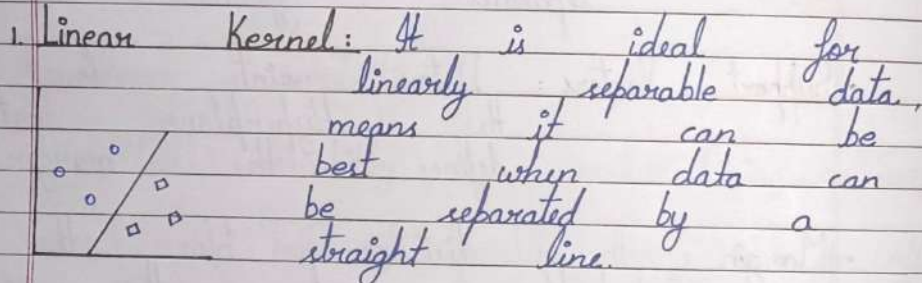 1. Linear Kernel: It is ideal for
linearly separable data.
means it can be
best when data can
be separated by a
straight line.